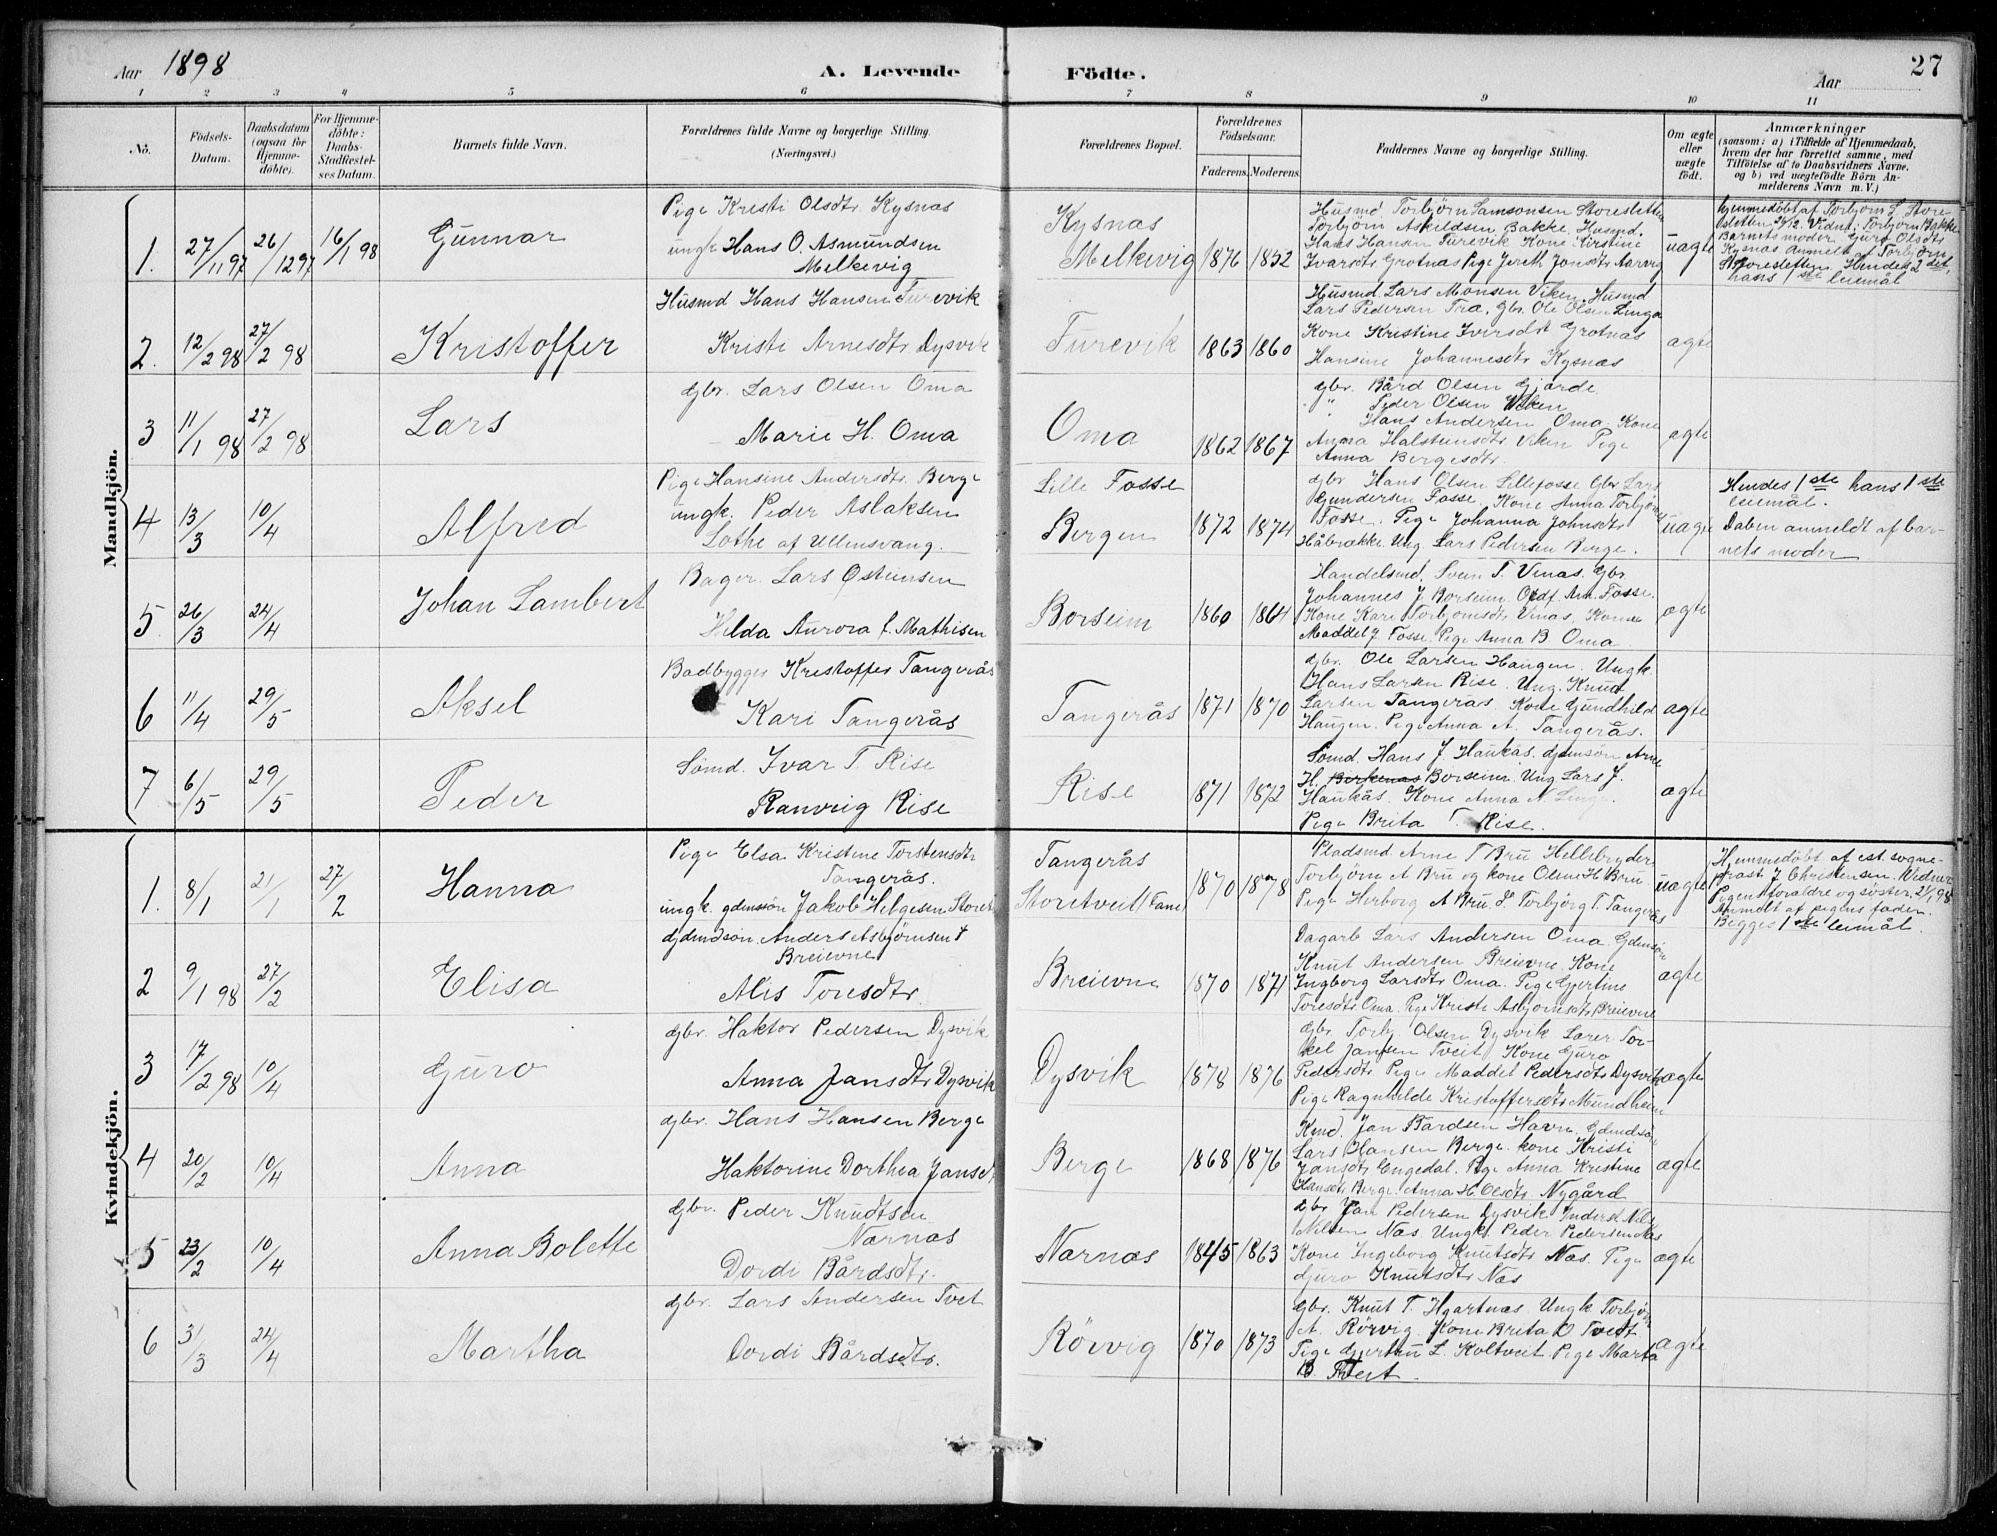 Aar 1898
A. Levende Fødte.
Aar
27
1 2 3 4 5 6 7 8 9 10 11
No.
Fødsels-Datum.
Daabsdatum (ogsaa for Hjemmedøbte).
For Hjemmedøbte: Daabs-Stadfæstelses Datum.
Barnets fulde Navn.
Forældrenes fulde Navne og borgerlige Stilling.
(Næringsvei.)
Forældrenes Bopæl.
Forældrenes Fødselsaar.
Faderens. Moderens.
Faddernes Navne og borgerlige Stilling.
Om ægte eller uægte født.
Anmærkninger
(saasom: a) i Tilfælde af Hjemmedaab,
hvem der har forrettet samme, med
Tilføielse af to Daabsvidners Navne,
og b) ved uægtefødte Børn Anmelderens Navn m. V.)
Mandkjön.
1. 27/11 97 26/12 97 16/1 98 Gunnar
Pige Kristi Olsdtr. Kysnæs
ungk Hans O. Asmundsen
Melkevig
Kysnæs
Melkevig 1876 1852
Husmd Torbjörn Samsonsen Storesletten
Torbjörn Askildsen Bakke, Husmd.
Hans Hansen Turevik Kone Kirstine
Ivarsdtr Grotnæs Pige Jereth Jonsdtr Aarvig
uægte
hjemmedöbt af Torbjörn S. Storesletten 26/12. Vidn: Torbjörn Bakke
Barnets moder, Guro Olsdtr
Kysnæs Anmelt af Torbjörn
Storesletten. Hendes 2det,
hans 1ste leiemål
2. 12/2 98 27/2 98 Kristoffer
Husmd Hans Hansen Turevik
Kristi Arnesdtr Dysvik
Turevik 1863 1860
Husmd. Lars Monsen Viken. Husmd
Lars Pedersen Træ, Gbr. Ole Olsen Linga
Kone Kristine Iversdtr Grotnæs
Hansine Johannesdtr Kysnæs
ægte
3 11/1 98 27/2 98 Lars
Gbr. Lars Olsen Oma
Marie H. Oma
Oma 1862 1867
Gbr. Bård Olsen Gjærde
" Peder Olsen Viken
" Hans Andersen Oma Kone
Anna Halstensdtr Viken Pige
Anna Bergesdtr.
ægte
4 13/3 10/4 Alfred
Pige Hansine Andersdtr. Berge
ungk. Peder Aslaksen
Lothe af Ullensvang.
Lille Fosse
Bergen 1872 1874
Gbr Hans Olsen Lillefosse Gbr Lars
Gundersen Fosse, Kone Anna Torbjörns
Fosse. Pige Johanna Johnsdtr
Håbrække. Ung Lars Pedersen Berge.
uægte
Hendes 1ste hans 1ste
leiemål.
Daben anmeldt af barnets moder
5. 26/3 24/4 Johan Lambert
Bager. Lars Östensen
Hilda Aurora f. Mathisen
Borseim 1860 1864
Handelsmd. Sven T. Vinæs. Gbr.
Johannes J. Borseim. Ordf. Arn. Fosse.
Kone Kari Torbjörnsdtr Vinæs, Kone
Maddel J. Fosse. Pige Anna B. Oma
ægte
6 11/4 29/5 Aksel
Badbygger Kristoffer Tangerås
Kari Tangerås
Tangerås 1871 1870
Gbr. Ole Larsen Haugen. Ungk.
Hans Larsen Rise. Ung. Knud
Larsen Tangerås Kone Gundhild
Haugen. Pige Anna A. Tangerås.
ægte
7 6/5 29/5 Peder
Sömd. Ivar T. Rise
Ranveig Rise
Rise 1871 1872
Sömd. Hans J. Haukås. Gdmsön Arne
H. Borseim. Ung Lars J.
Haukås. Kone Anna N. Ling
Pige Brita T. Rise.
ægte
Kvindekjön.
1. 8/1 21/1 27/2 Hanna
Pige Elsa Kristine Torstensdtr
Tangerås.
ungk. gdmsön Jakob Helgesen Storet
Tangerås
Storetveit (Fane) 1870 1878
Pladsmd. Arne T Bru Hellebryder
Torbjörn A Bru og kone Oline H. Bru
Pige Herborg A Bru & Torbjörg T. Tangerås
uægte
Hjemmedöbt af est. sogneprest J Christensen. Widner
Pigens foraldre og söster. 21/1 98
Anmeldt af pigens fader.
Begges 1ste leiemål.
2 9/1 98 27/2 Elisa
Gdmdsön. Anders Asbjörnsen
Breievne
Alis Toresdtr.
Breievne 1870 1871
Dagarb Lars Andersen Oma. Gdmsön
Knut Andersen Breievne Kone
Ingborg Larsdtr Oma. Pige Gjertine
Toresdtr Oma. Pige Kristi Asbjörnsdtr Breievne
ægte
3 17/2 98 10/4 Guro
Gbr. Haktor Pedersen Dysvik
Anna Jansdtr Dysvik
Dysvik 1878 1876
Gbr Torbj Olsen Dysvik Lærer Torkel Jansen Tveit Kone Guro
Pedersdtr Pige Maddel Pedersdtr Dysvik
Pige Ragnhilde Kristoffersdtr Mundheim
ægte
4 20/2 10/4 Anna
Gbr. Hans Hansen Berge
Haktorine Dorthea Jansdtr
Berge 1868 1876
Kmd. Jan Bårdsen Havn. Gdmdsön
Lars Hansen Berge. kone Kristi
Jansdtr Engedal. Pige Anna Kristine
Hansdtr Berge. Anna H. Olsdtr. Nygård
ægte
5 23/2 10/4 Anna Bolette
Gbr. Peder Knudtsen
Nærnæs
Dordi Bårdsdtr.
Nærnæs 1845 1863
Gbr Jan Pedersen Dysvik Inderst Nils
Nilsen Næs Ungk Peder Pedersen Næs
Kone Ingeborg Knutsdtr Næs. Pige
Guro Knutsdtr Næs
ægte
6 31/3 24/4 Martha
Gbr. Lars Andersen Tvet
Dordi Bårdsdtr.
Rörvig 1870 1873
Gbr. Knut T. Hjartnæs. Ungk Torbjörn
A. Rörvig. Kone Brita O Tveit
Pige Gjertru L. Koltveit Pige Marta
B. Tveit.
ægte